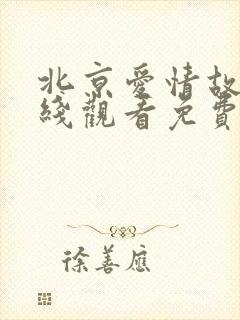 北京愛情故
綫觀看免費
徐善應